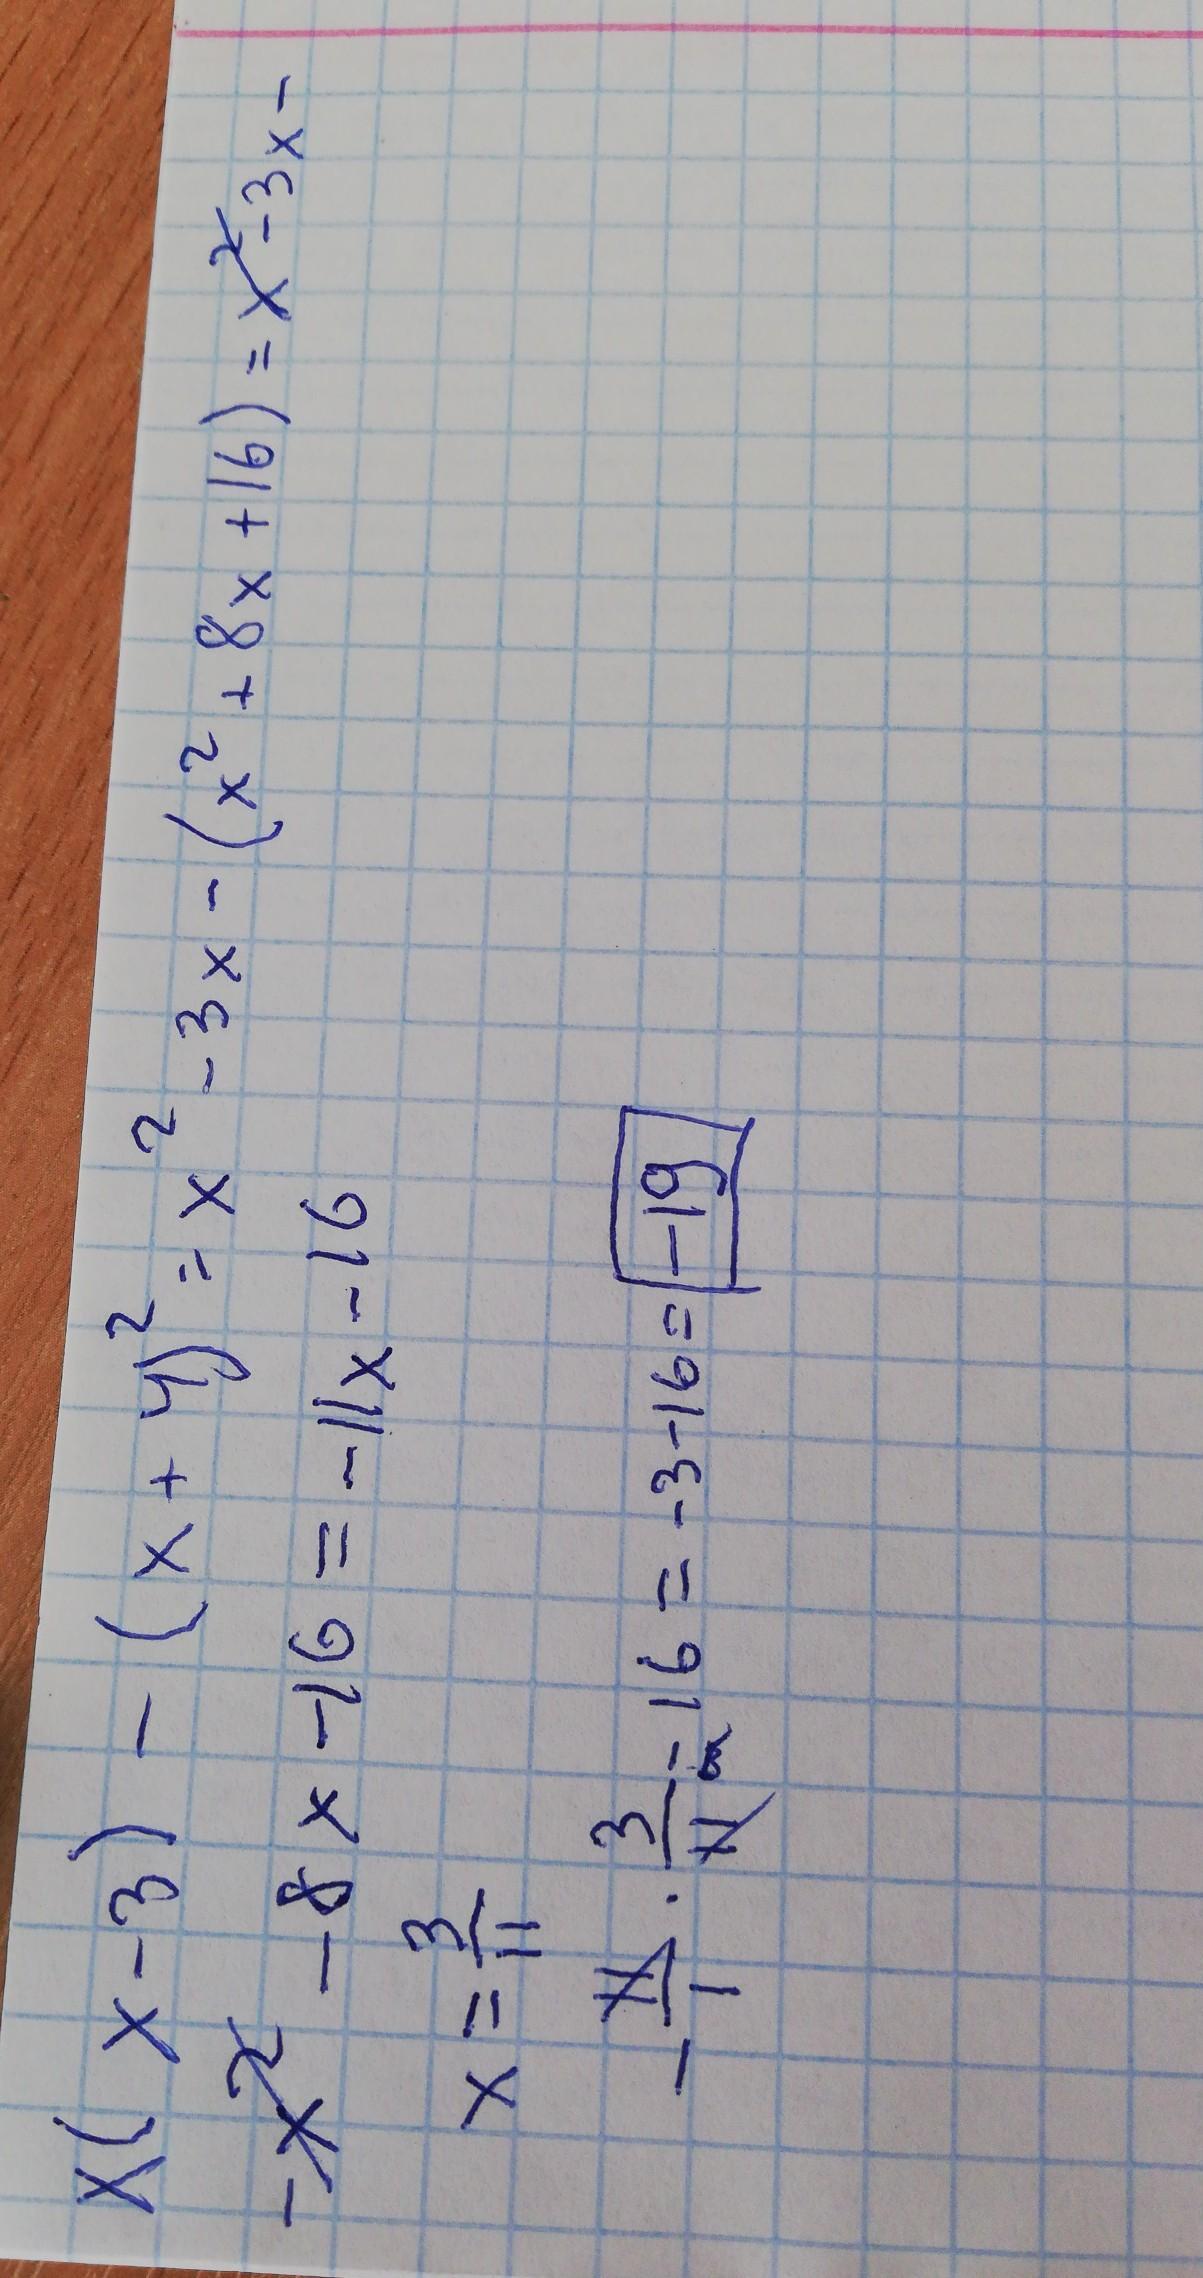 x(x-3) - (x+4)² = x² - 3x - (x² + 8x + 16) = x² - 3x -
- x² - 8x - 16 = -11x - 16
x = 3/11
- 11/1 · 3/11 - 16 = -3 - 16 = -19